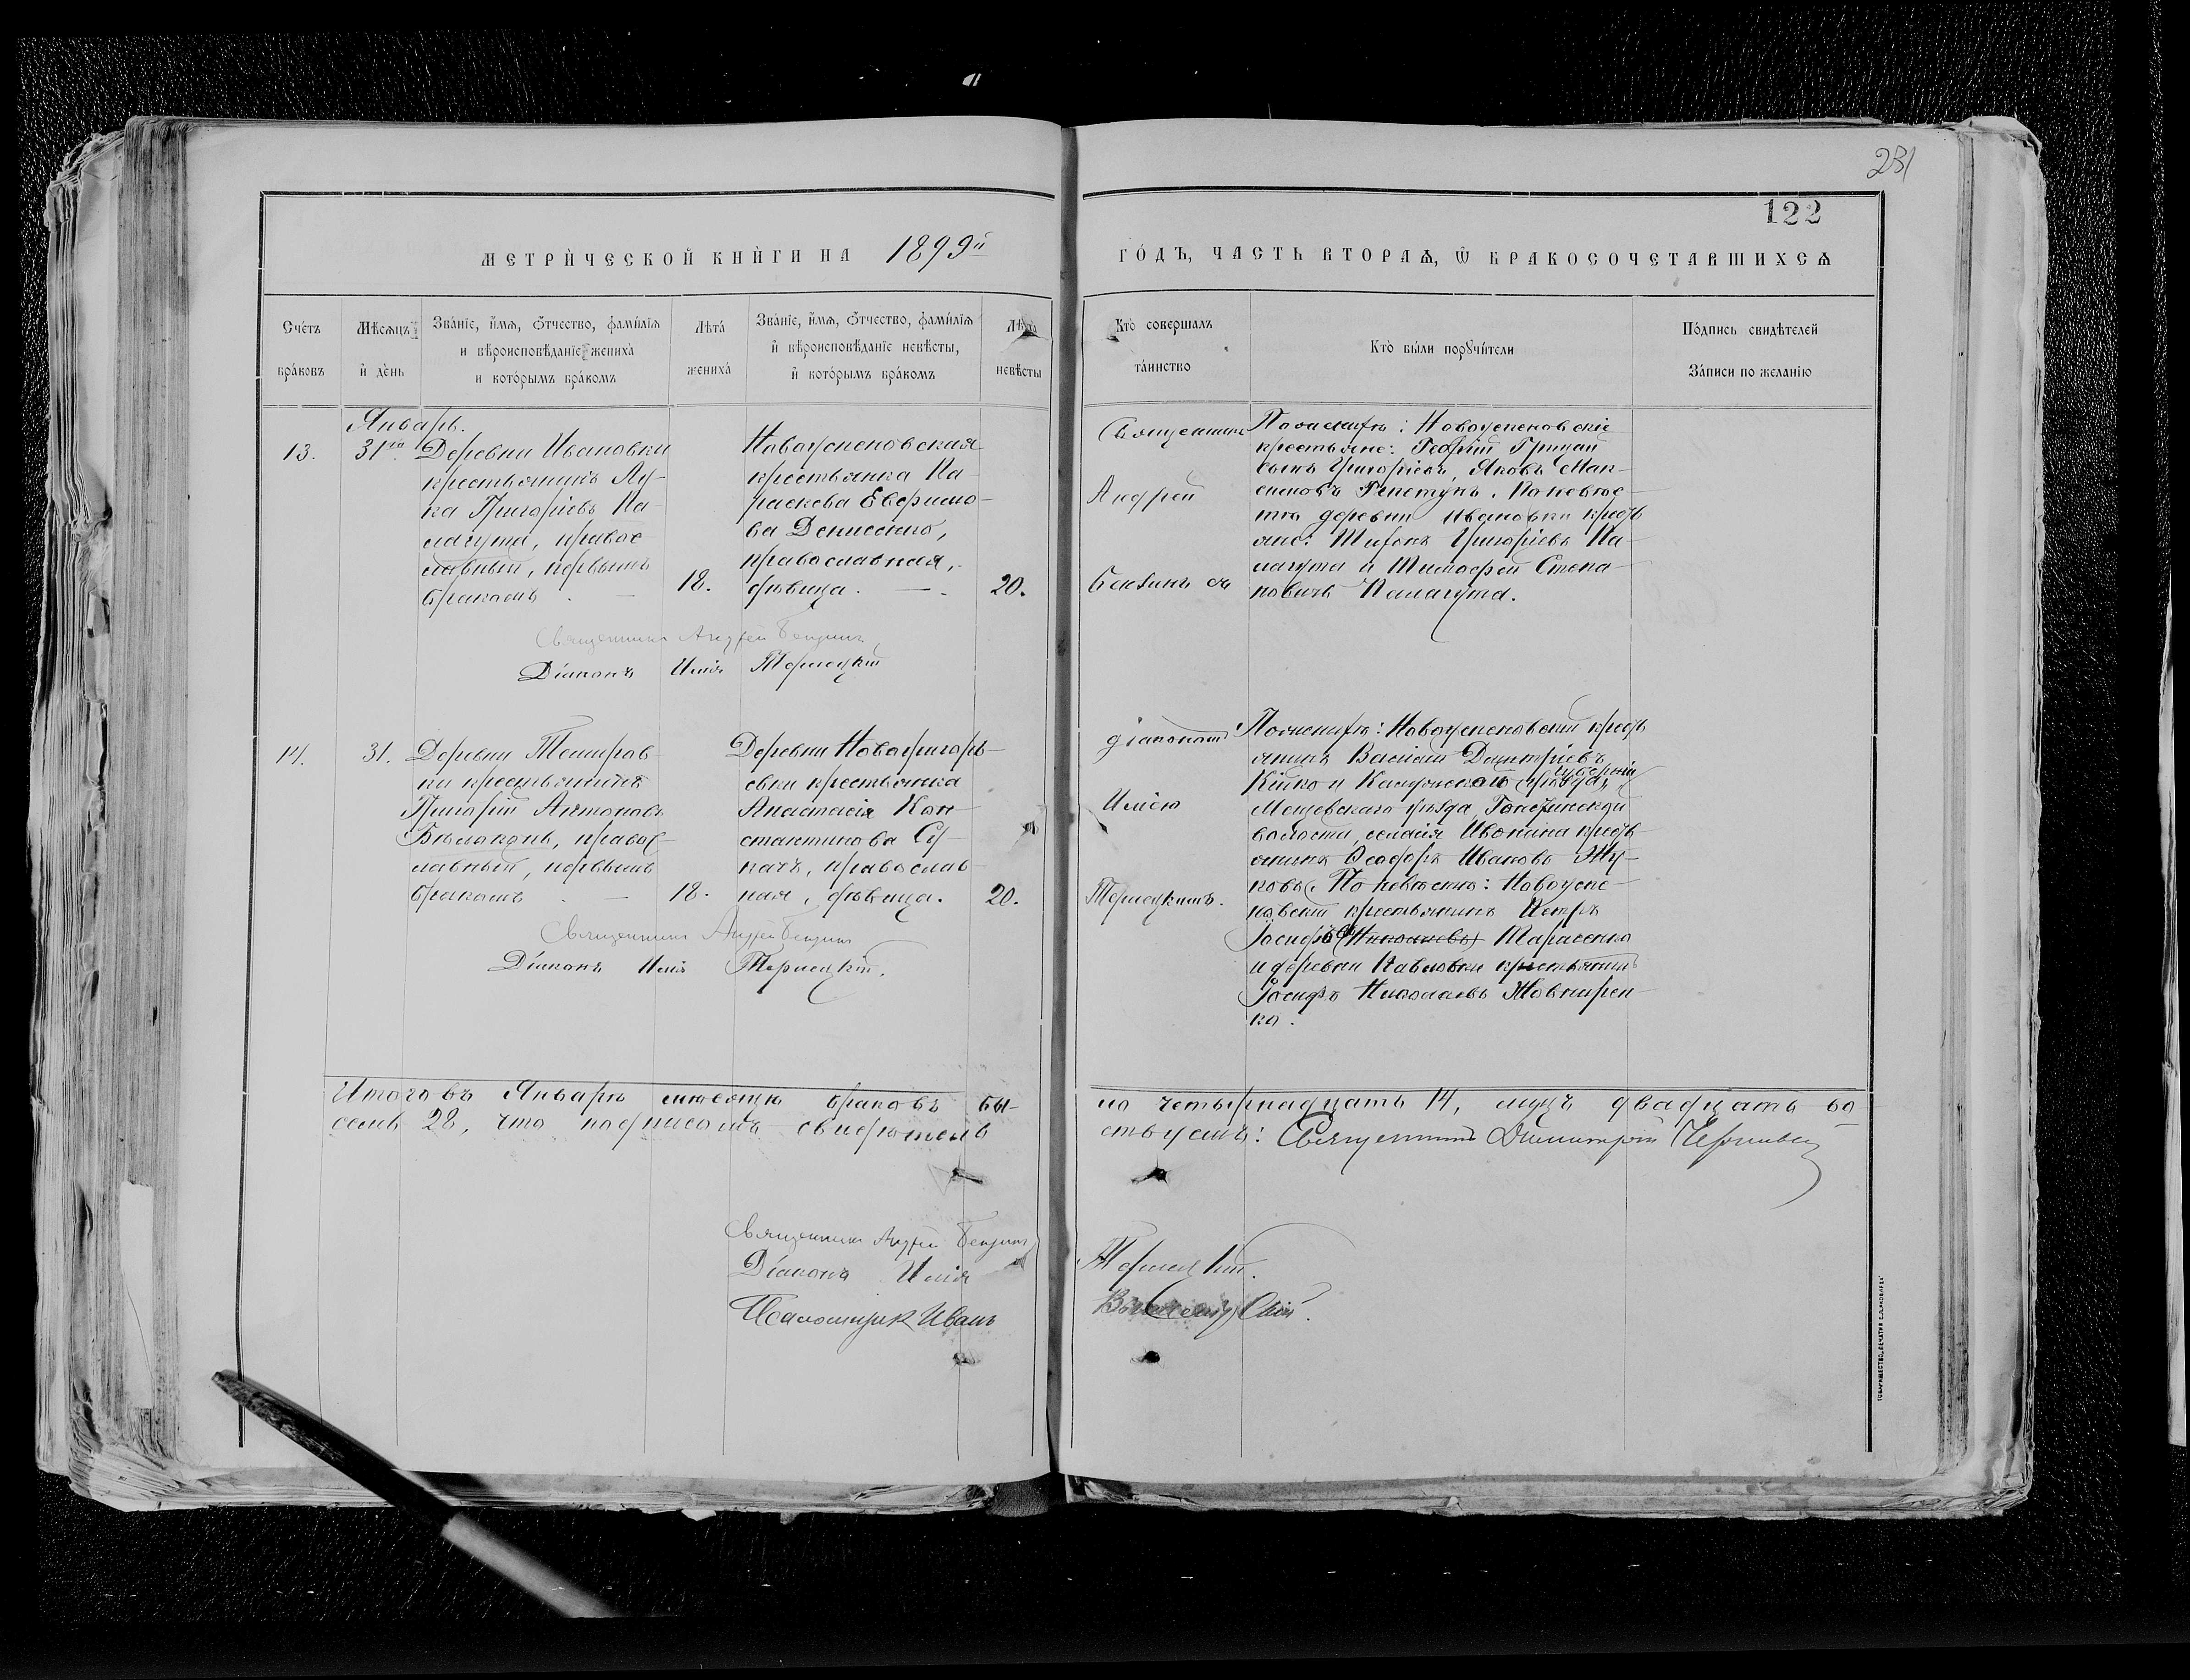 231
122
МЕТРИ́ЧЕСКОЙ КНИ́ГИ НА 1899й
ГО́ДЪ, ЧАСТЬ ВТОРАѦ, Ѡ БРАКОСОЧЕТАВШИХСѦ
Сче́тъ бра́ковъ
Мѣсѧцъ и де́нь
Зва́нїе, и́мѧ, ѻ́тчество, фами́лїѧ
и вѣроисповѣ́данїе жениха̀
и кото́рымъ бра́комъ
Лѣта̀ жениха̀
Зва́нїе, и́мѧ, ѻ́тчество, фами́лїѧ
и вѣроисповѣ́данїе невѣ́сты,
и кото́рымъ бра́комъ
Лѣта̀ невѣ́сты
Кто̀ совершалъ
та́инство
Кто̀ бы́ли порꙋчи́тели
По́дпись свидѣ́телей
За́писи по жела́нїю
Январь.
13.
31го
Деревни Ивановки
крестьянинъ Лу-
ка Григоріевъ Па-
лагута, правос
лавный, первымъ
бракомъ. —
18.
Новоуспеновская
крестьянка Па-
раскева Евфимо-
ва Денисенко,
православная,
дѣвица. —.
20.
Священникъ
Андрей
Бензинъ съ
По женихѣ: Новоуспеновскіе
крестьяне: Георгій Грицай
сынъ Григоріевъ, Яковъ Мак-
симовъ Репетунъ. По невѣс-
тѣ деревни Ивановки кресть
яне: Тихонъ Григоріевъ Па-
лагута и Тимофей Степа-
новичъ Палагута.
Священникъ Андрей Бензинъ
Діаконъ Илія Терлецкій
14.
31.
Деревни Темиров
ки крестьянинъ
Григорій Антоновъ
Бѣлоконь, правос-
лавный, первымъ
бракомъ. —
18.
Деревни Новогригорь-
евки крестьянка
Анастасія Кон-
стантинова Су-
качъ, православ-
ная, дѣвица.
20.
діакономъ
Иліею
Терлецкимъ.
По женихѣ: Новоуспеновскій кресть
янинъ Василій Димитріевъ
губерніи
Кійко и Калужской уѣзда,
Мещевскаго уѣзда,
волости, селенія кресть
янинъ Ѳеодоръ Ивановъ Жу-
ковъ. По невѣстѣ: Новоуспе-
новскій крестьянинъ Петръ
Іосифовъ (Николаевъ) Тарасенко
и деревни Павловки крестьянинъ
Іосифъ Николаевъ Жовнирен-
ко.
Священникъ Андрей Бензинъ
Діаконъ Илія Терлецкій.
Итого въ Январѣ мѣсяцѣ браковъ бы- ло четырнадцать 14, лицъ двадцать во
семь 28, что подписомъ свидѣтель ствуемъ: Священникъ Димитрій
Священникъ Андрей Бензинъ
Діаконъ Илія Терлецкій.
Псаломщикъ Иванъ